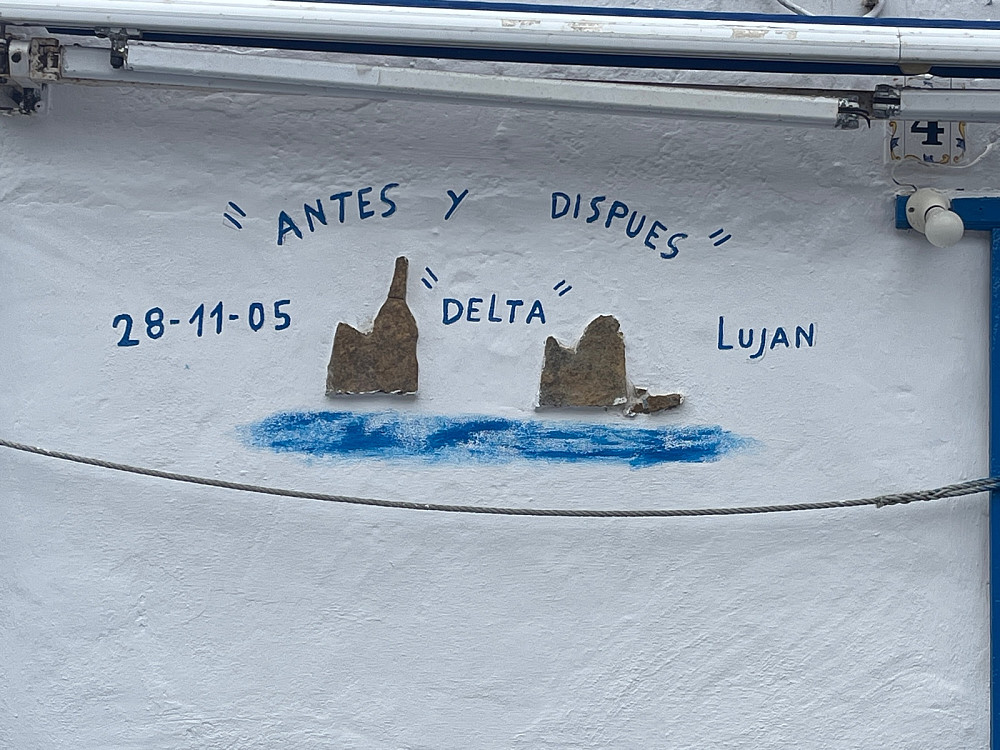 4
"ANTES Y DISPUES"
28-11-05 "DELTA" LUJAN